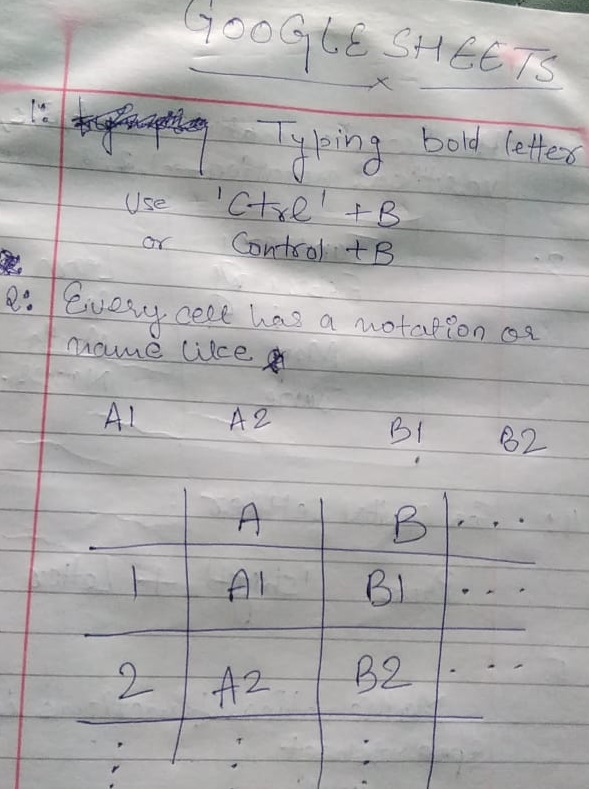 GOOGLE SHEETS
1: Typing bold letter
Use 'Ctrl' + B
or Control + B
2: Every cell has a notation or
name like
A1 A2 B1 B2
A B ...
1 A1 B1 ...
2 A2 B2 ...